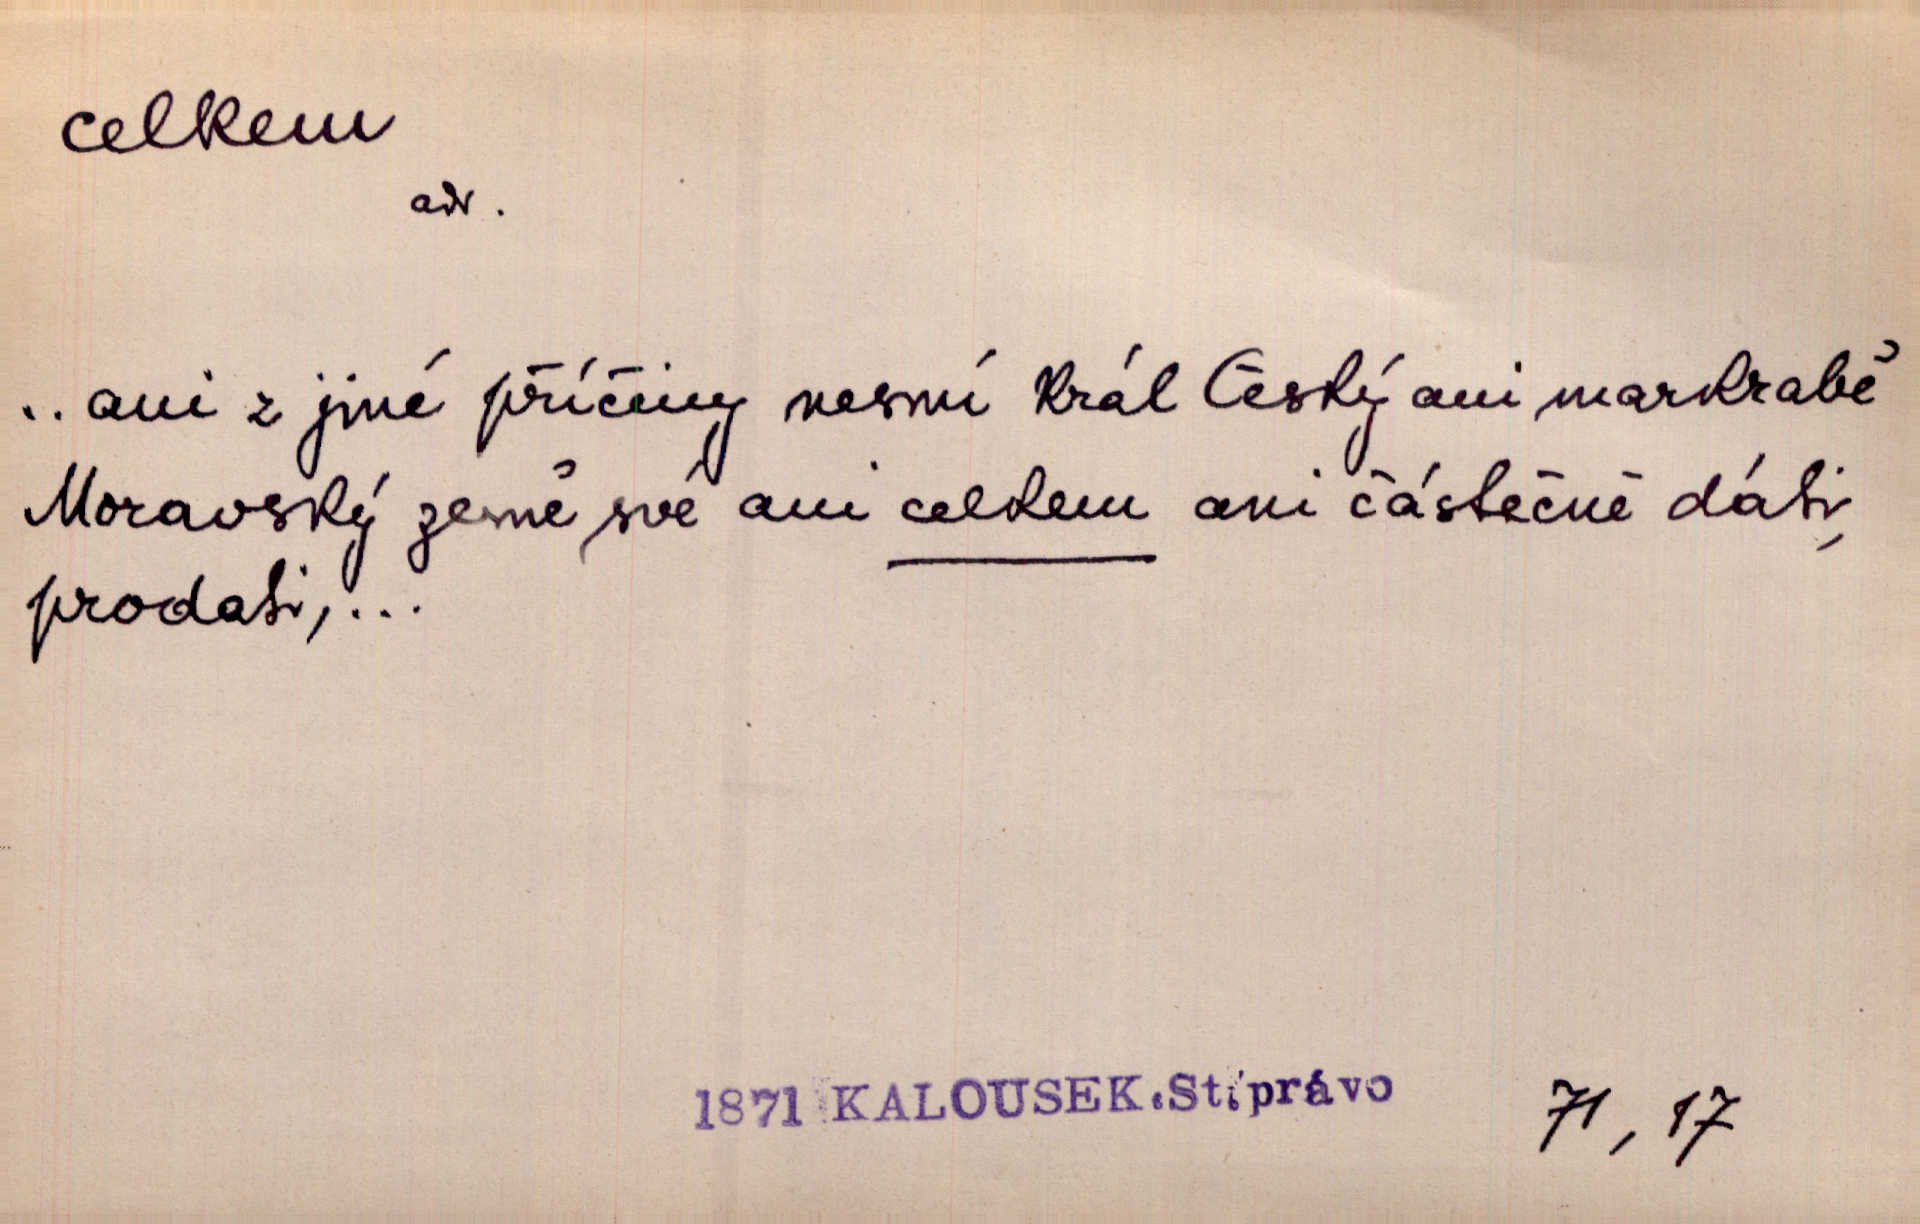 celkem
adv.
..ani z jiné příčiny nesmí král Český ani markrabě
Moravský země své ani celkem ani částečně dáti,
prodati,...
1871 KALOUSEK.St.právo 71, 17